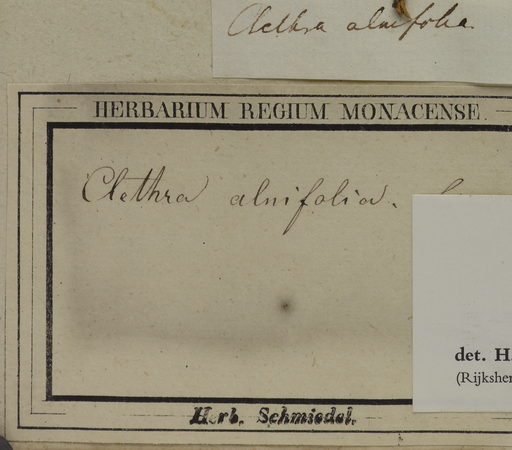 Clethra alnifolia
HERBARIUM REGIUM MONACENSE.
Clethra alnifolia.
det. H.
(Rijksher
Herb. Schmiedel.